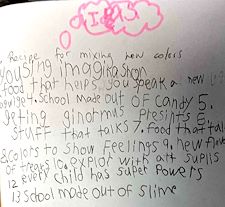 IDEAS
Recipe for mixing new colors
yousing imagination
food that helps you speak a new
4. school made out of candy 5.
geting ginormus presints 6.
stuff that talks 7. food that talks
8 colors to show Feelings 9. new flavers
of 10. explor with art suplis
12 every child has super powers
13 school made out of slime